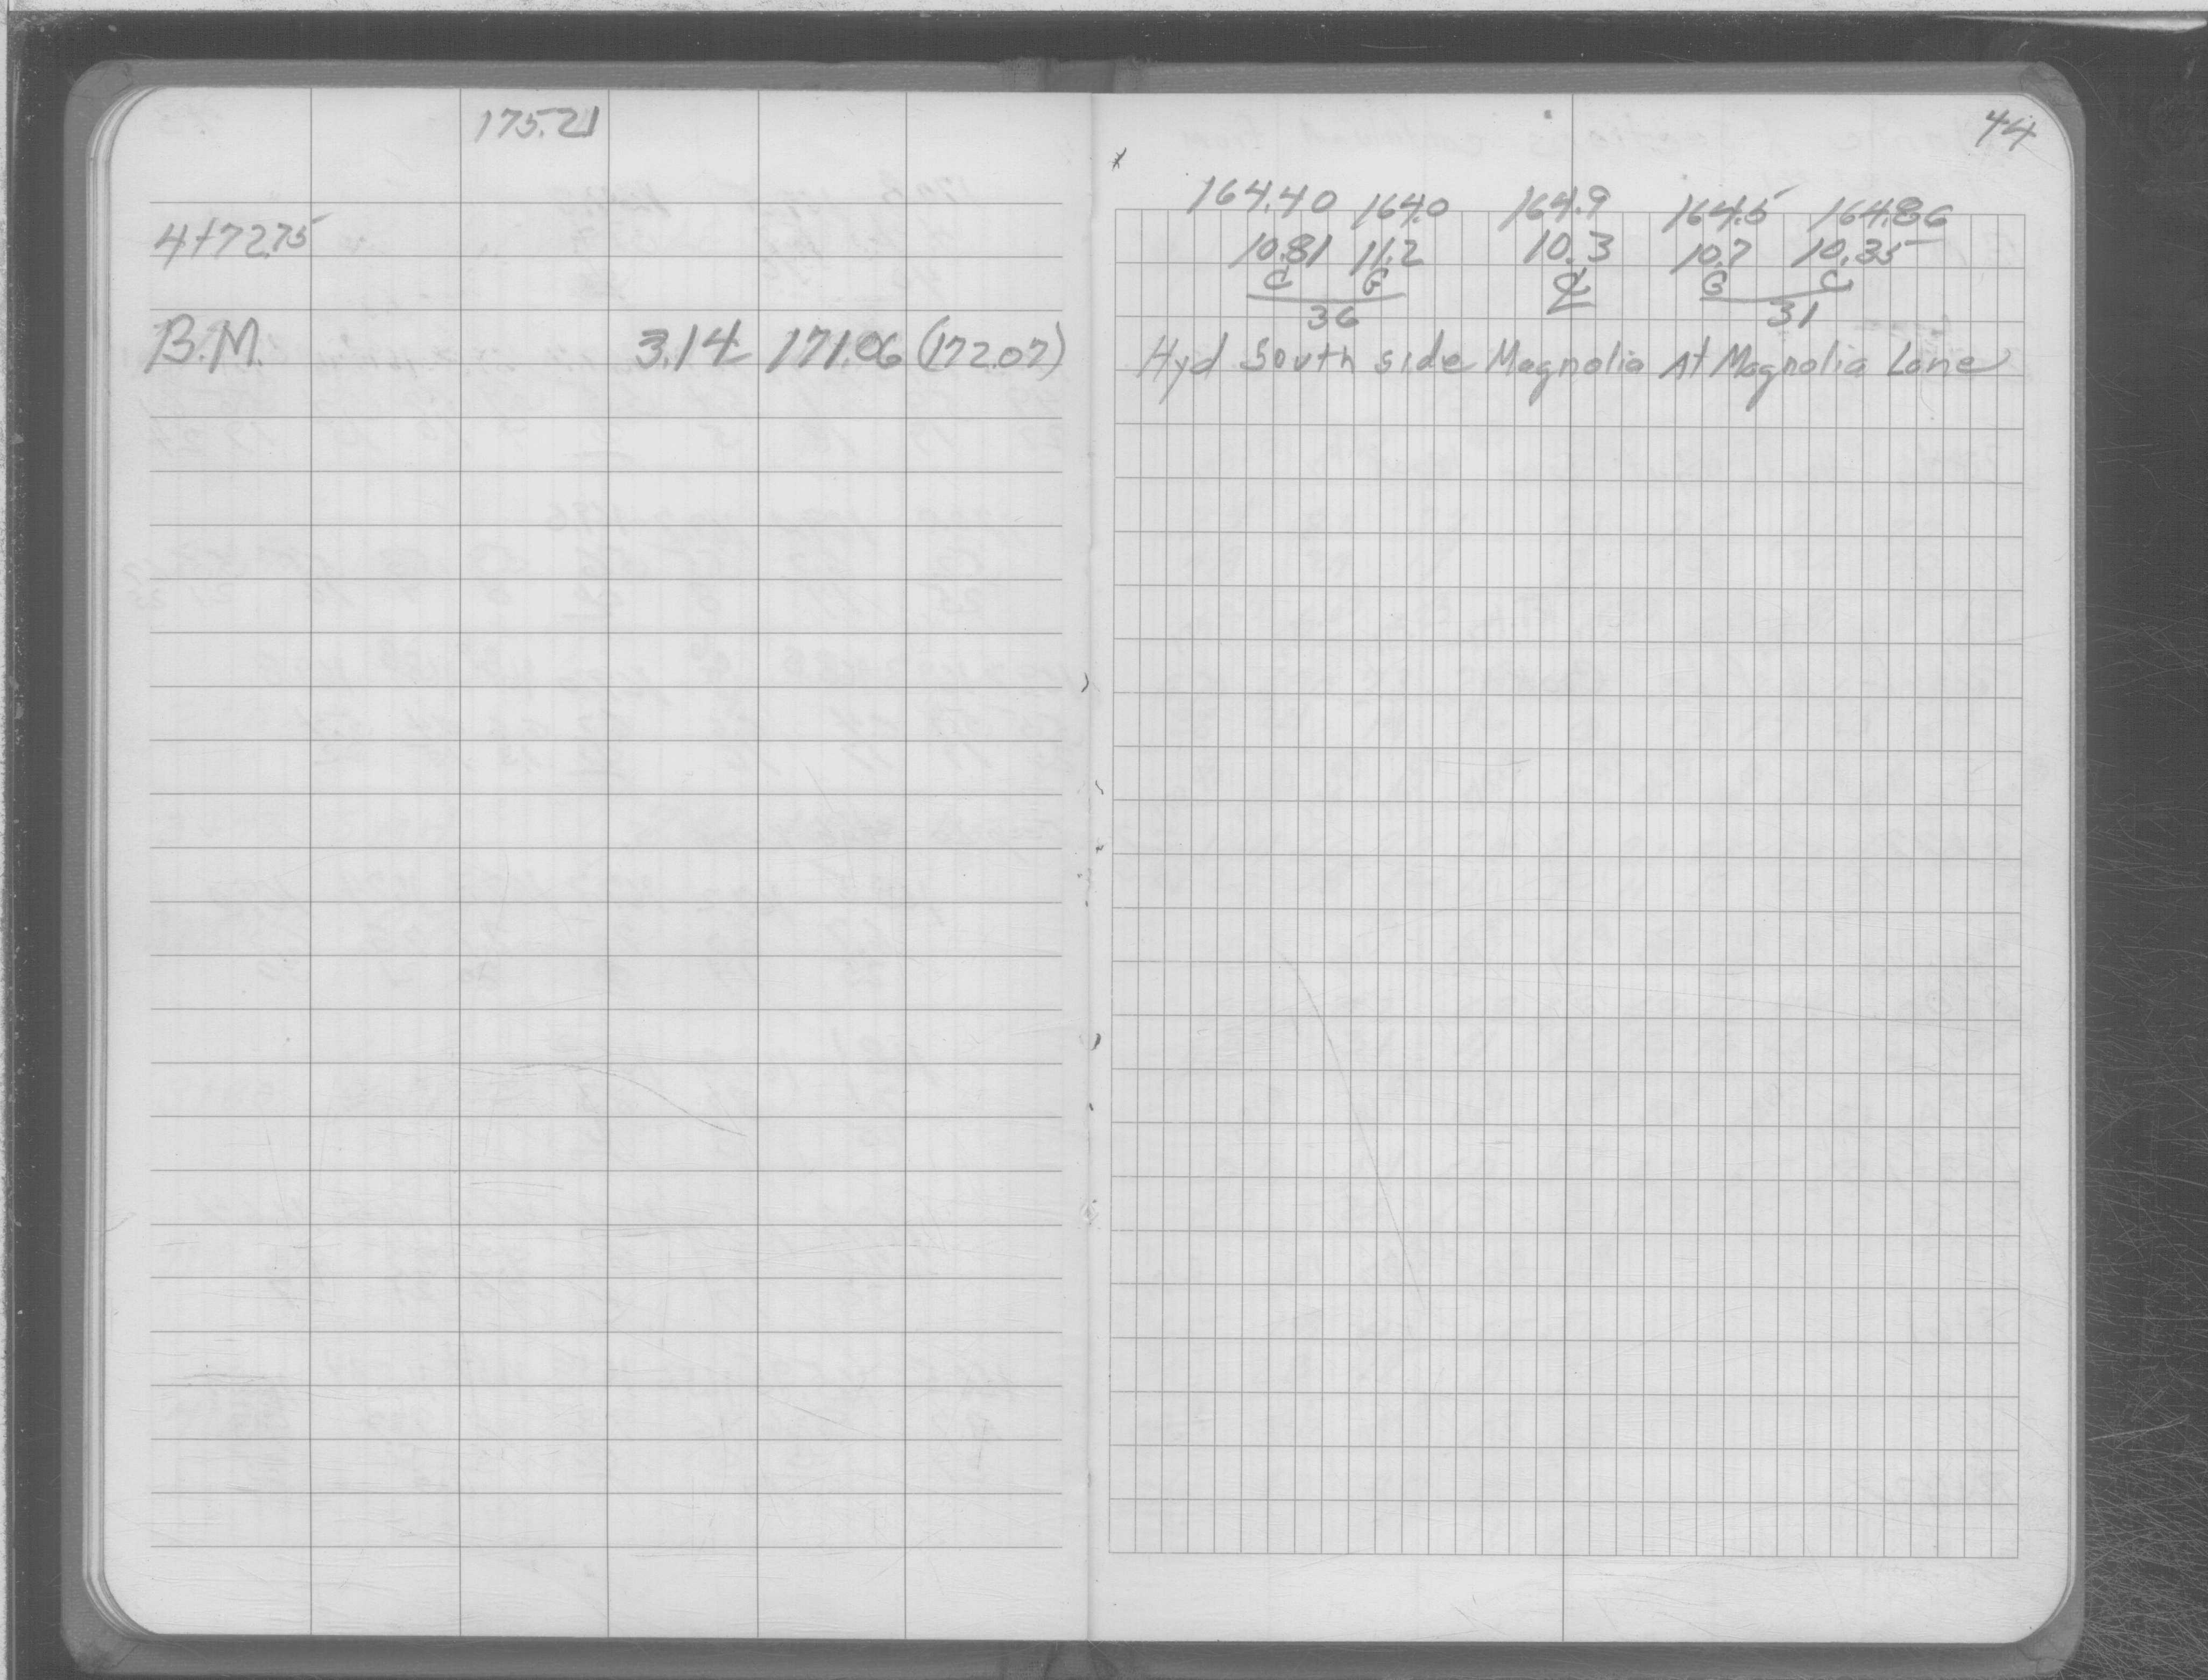 175.21
4+72.75
B.M. 3.14 171.06 (172.07)
44
164.40 164.0 164.9 164.5 164.86
10.81 11.2 10.3 10.7 10.35
C G ℄ G C
36 31
Hyd South side Magnolia At Magnolia Lane